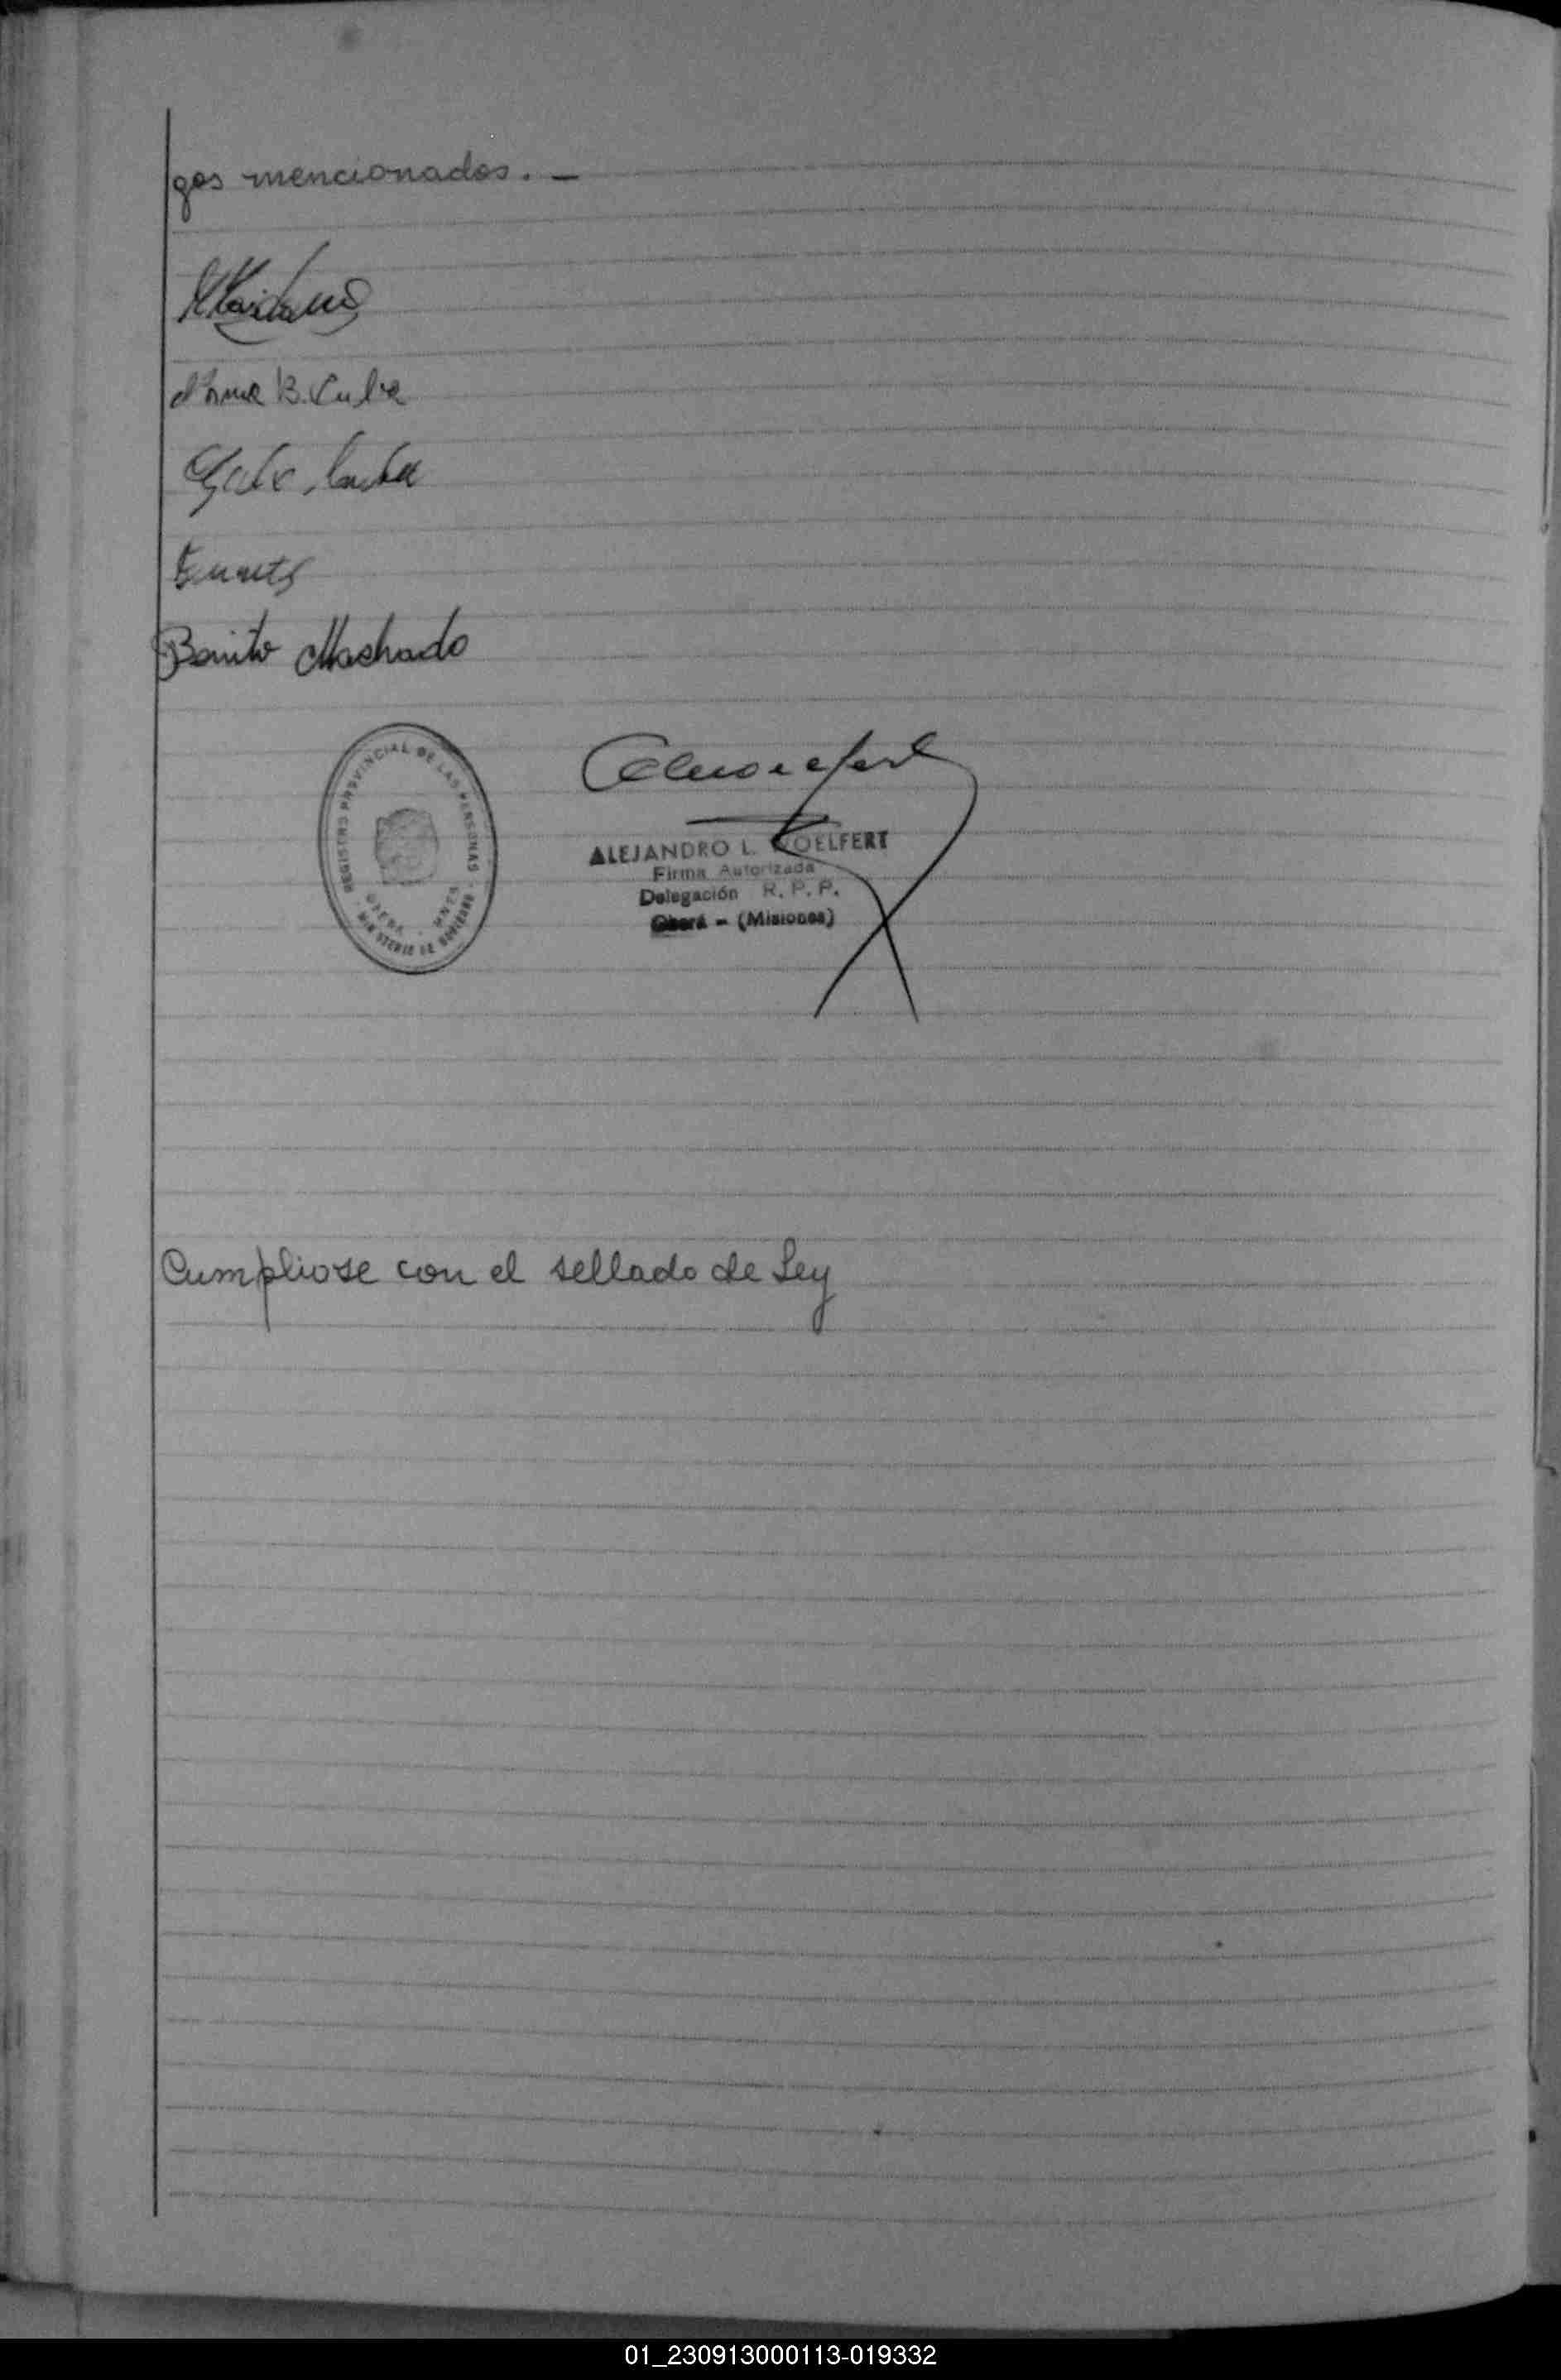 gos mencionados. -
Benito Machado
REGISTRO PROVINCIAL DE LAS PERSONAS
OBERA - MNES
MINISTERIO DE GOBIERNO
ALEJANDRO L. WOELFERT
Firma Autorizada
Delegación R. P. P.
Oberá - (Misiones)
Cumpliose con el sellado de Ley
01_230913000113-019332